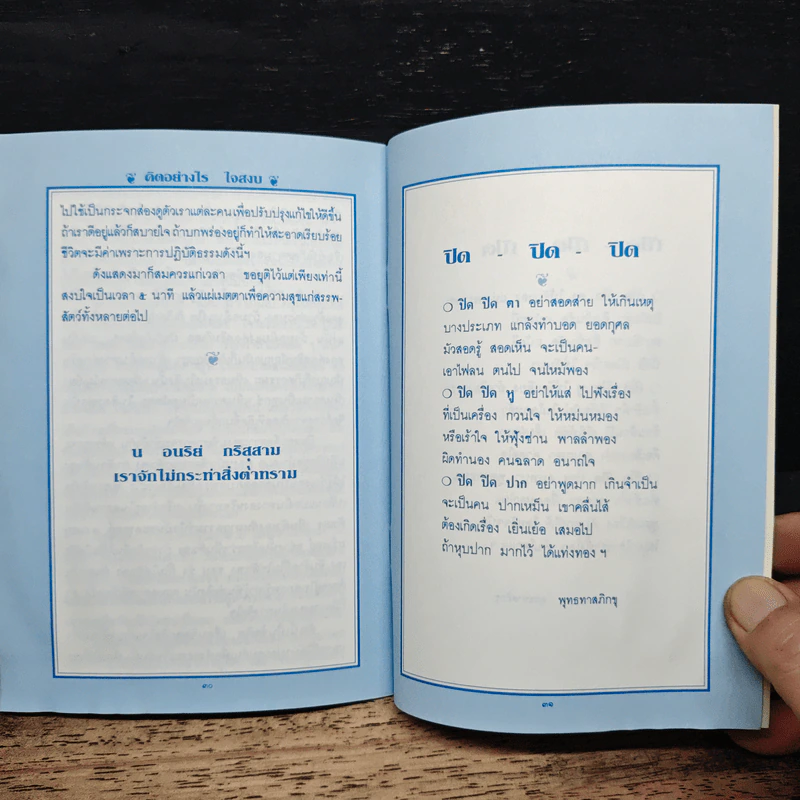 คิดอย่างไร ใจสงบ
ไปใช้เป็นกระจกส่องดูตัวเราแต่ละคนเพื่อปรับปรุงแก้ไขให้ดีขึ้น
ถ้าเราดีอยู่แล้วก็สบายใจ ถ้าบกพร่องอยู่ก็ทำให้สะอาดเรียบร้อย
ชีวิตจะมีค่าเพราะการปฏิบัติธรรมดังนี้ฯ
ดังแสดงมาก็สมควรแก่เวลา ขอยุติไว้แต่เพียงเท่านี้
สงบใจเป็นเวลา ๕ นาที แล้วแผ่เมตตาเพื่อความสุขแก่สรรพ-
สัตว์ทั้งหลายต่อไป
น อนริยํ กริสฺสาม
เราจักไม่กระทำสิ่งต่ำทราม
๓๐
ปิด - ปิด - ปิด
❍ ปิด ปิด ตา อย่าสอดส่าย ให้เกินเหตุ
บางประเภท แกล้งทำบอด ยอดกุศล
มัวสอดรู้ สอดเห็น จะเป็นคน-
เอาไฟลน ตนไป จนไหม้พอง
❍ ปิด ปิด หู อย่าให้แส่ ไปฟังเรื่อง
ที่เป็นเครื่อง กวนใจ ให้หม่นหมอง
หรือเร้าใจ ให้ฟุ้งซ่าน พาลลำพอง
ผิดทำนอง คนฉลาด อนาถใจ
❍ ปิด ปิด ปาก อย่าพูดมาก เกินจำเป็น
จะเป็นคน ปากเหม็น เขาคลื่นไส้
ต้องเกิดเรื่อง เยิ่นเย้อ เสมอไป
ถ้าหุบปาก มากไว้ ได้แท่งทอง ฯ
พุทธทาสภิกขุ
๓๑